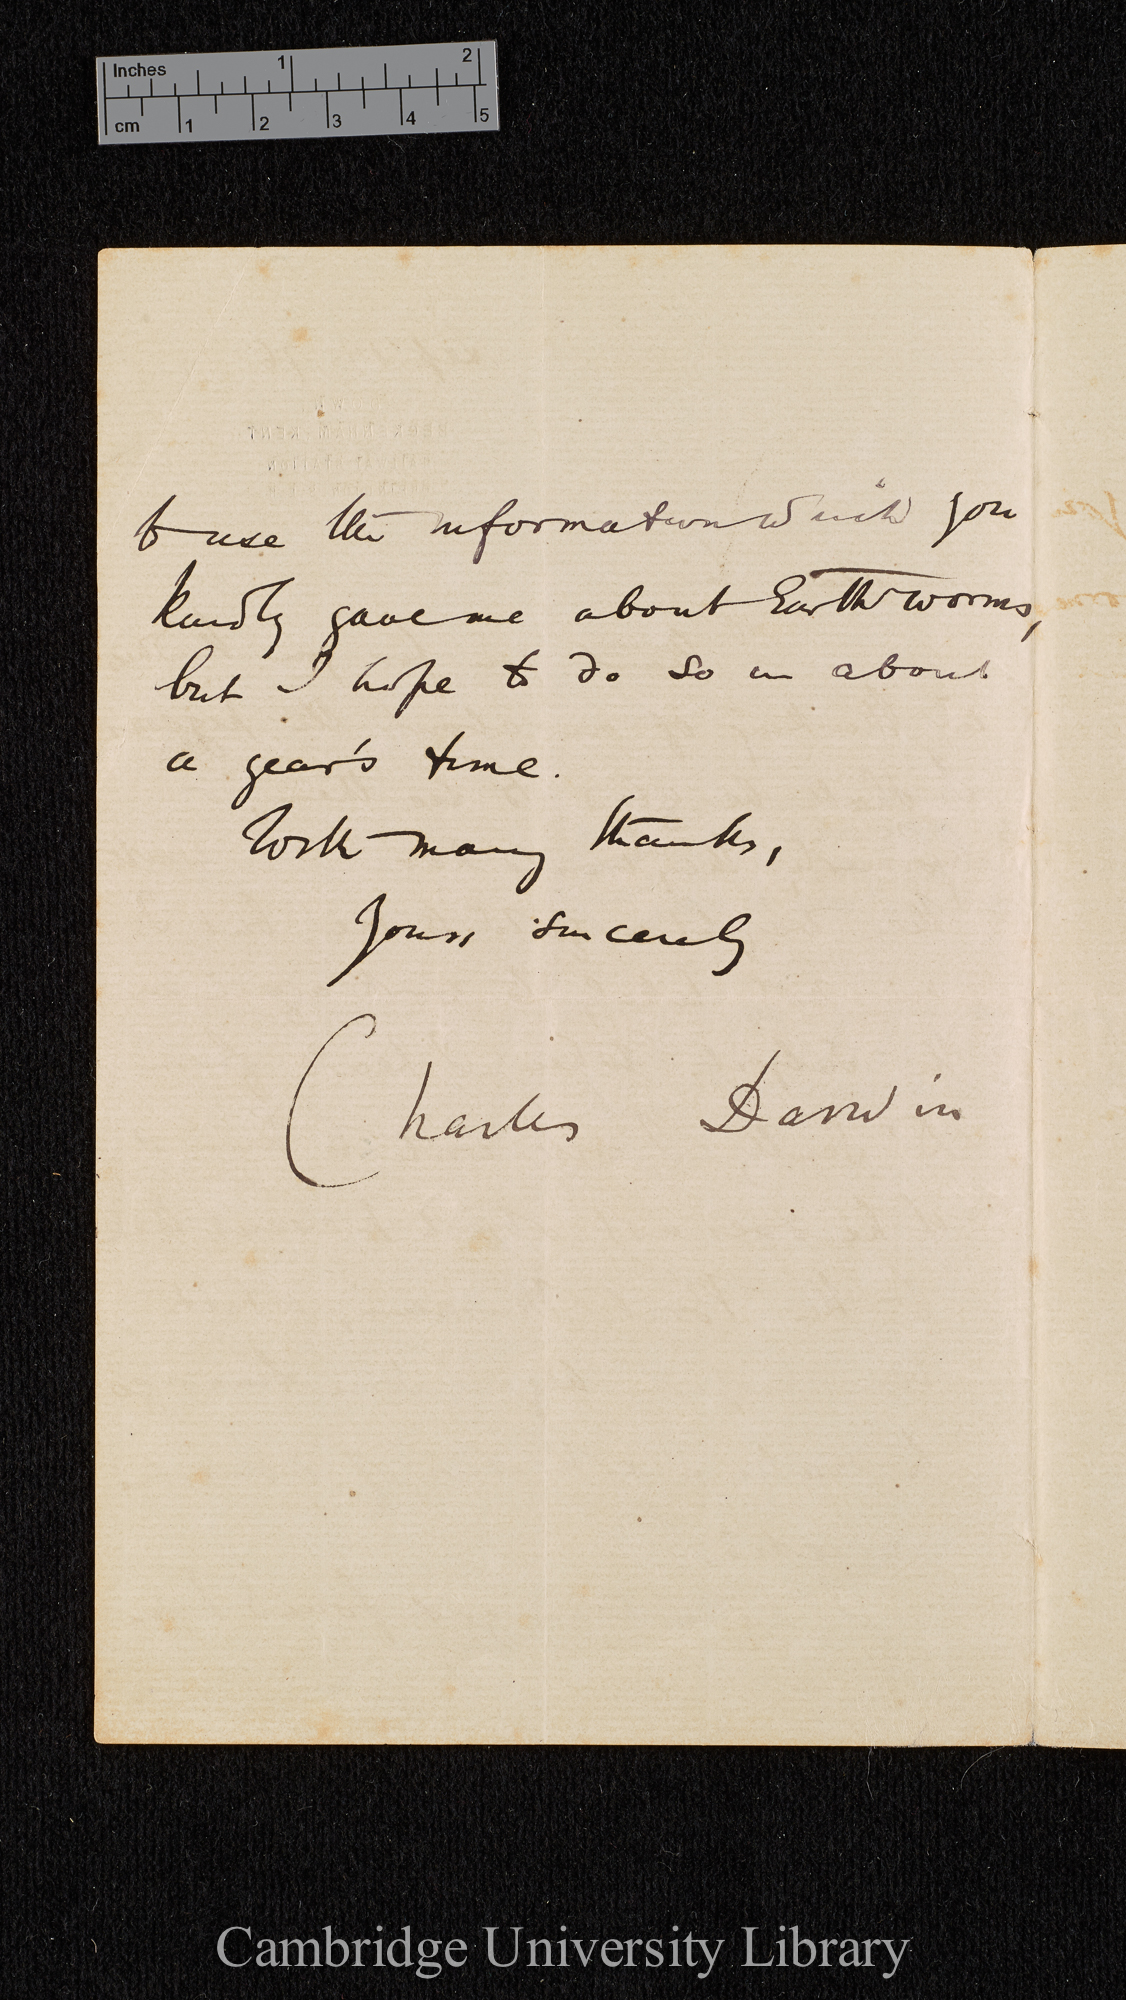 Inches 1 2
cm 1 2 3 4 5
to use the information which you
kindly gave me about Earth worms,
but I hope to do so in about
a year's time.
With many thanks,
Yours sincerely
Charles Darwin
Cambridge University Library